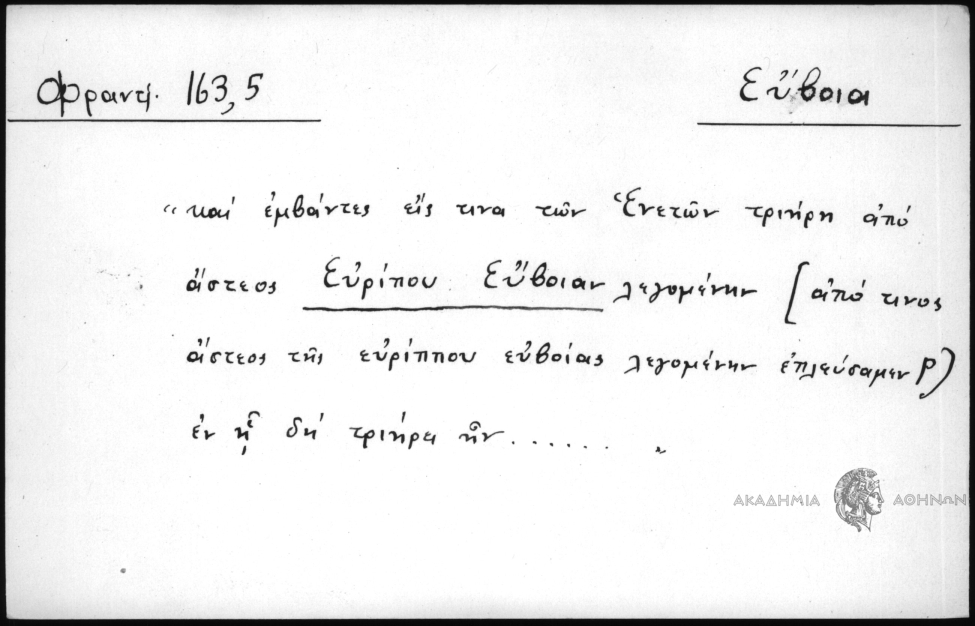 Φραντζ. 163,5
Εὔβοια
"καί ἐμβάντες εἴς τινα τῶν Ἑνετῶν τριήρη ἀπό
ἄστεος Εὐρίπου Εὔβοιαν λεγομένην [ἀπό τινος
ἄστεος τῆς εὐρίππου εὐβοίας λεγομένην ἐπλεύσαμεν P)
ἐν ᾗ δή τριήρει ἦν ...... "
ΑΚΑΔΗΜΙΑ ΑΘΗΝΩΝ